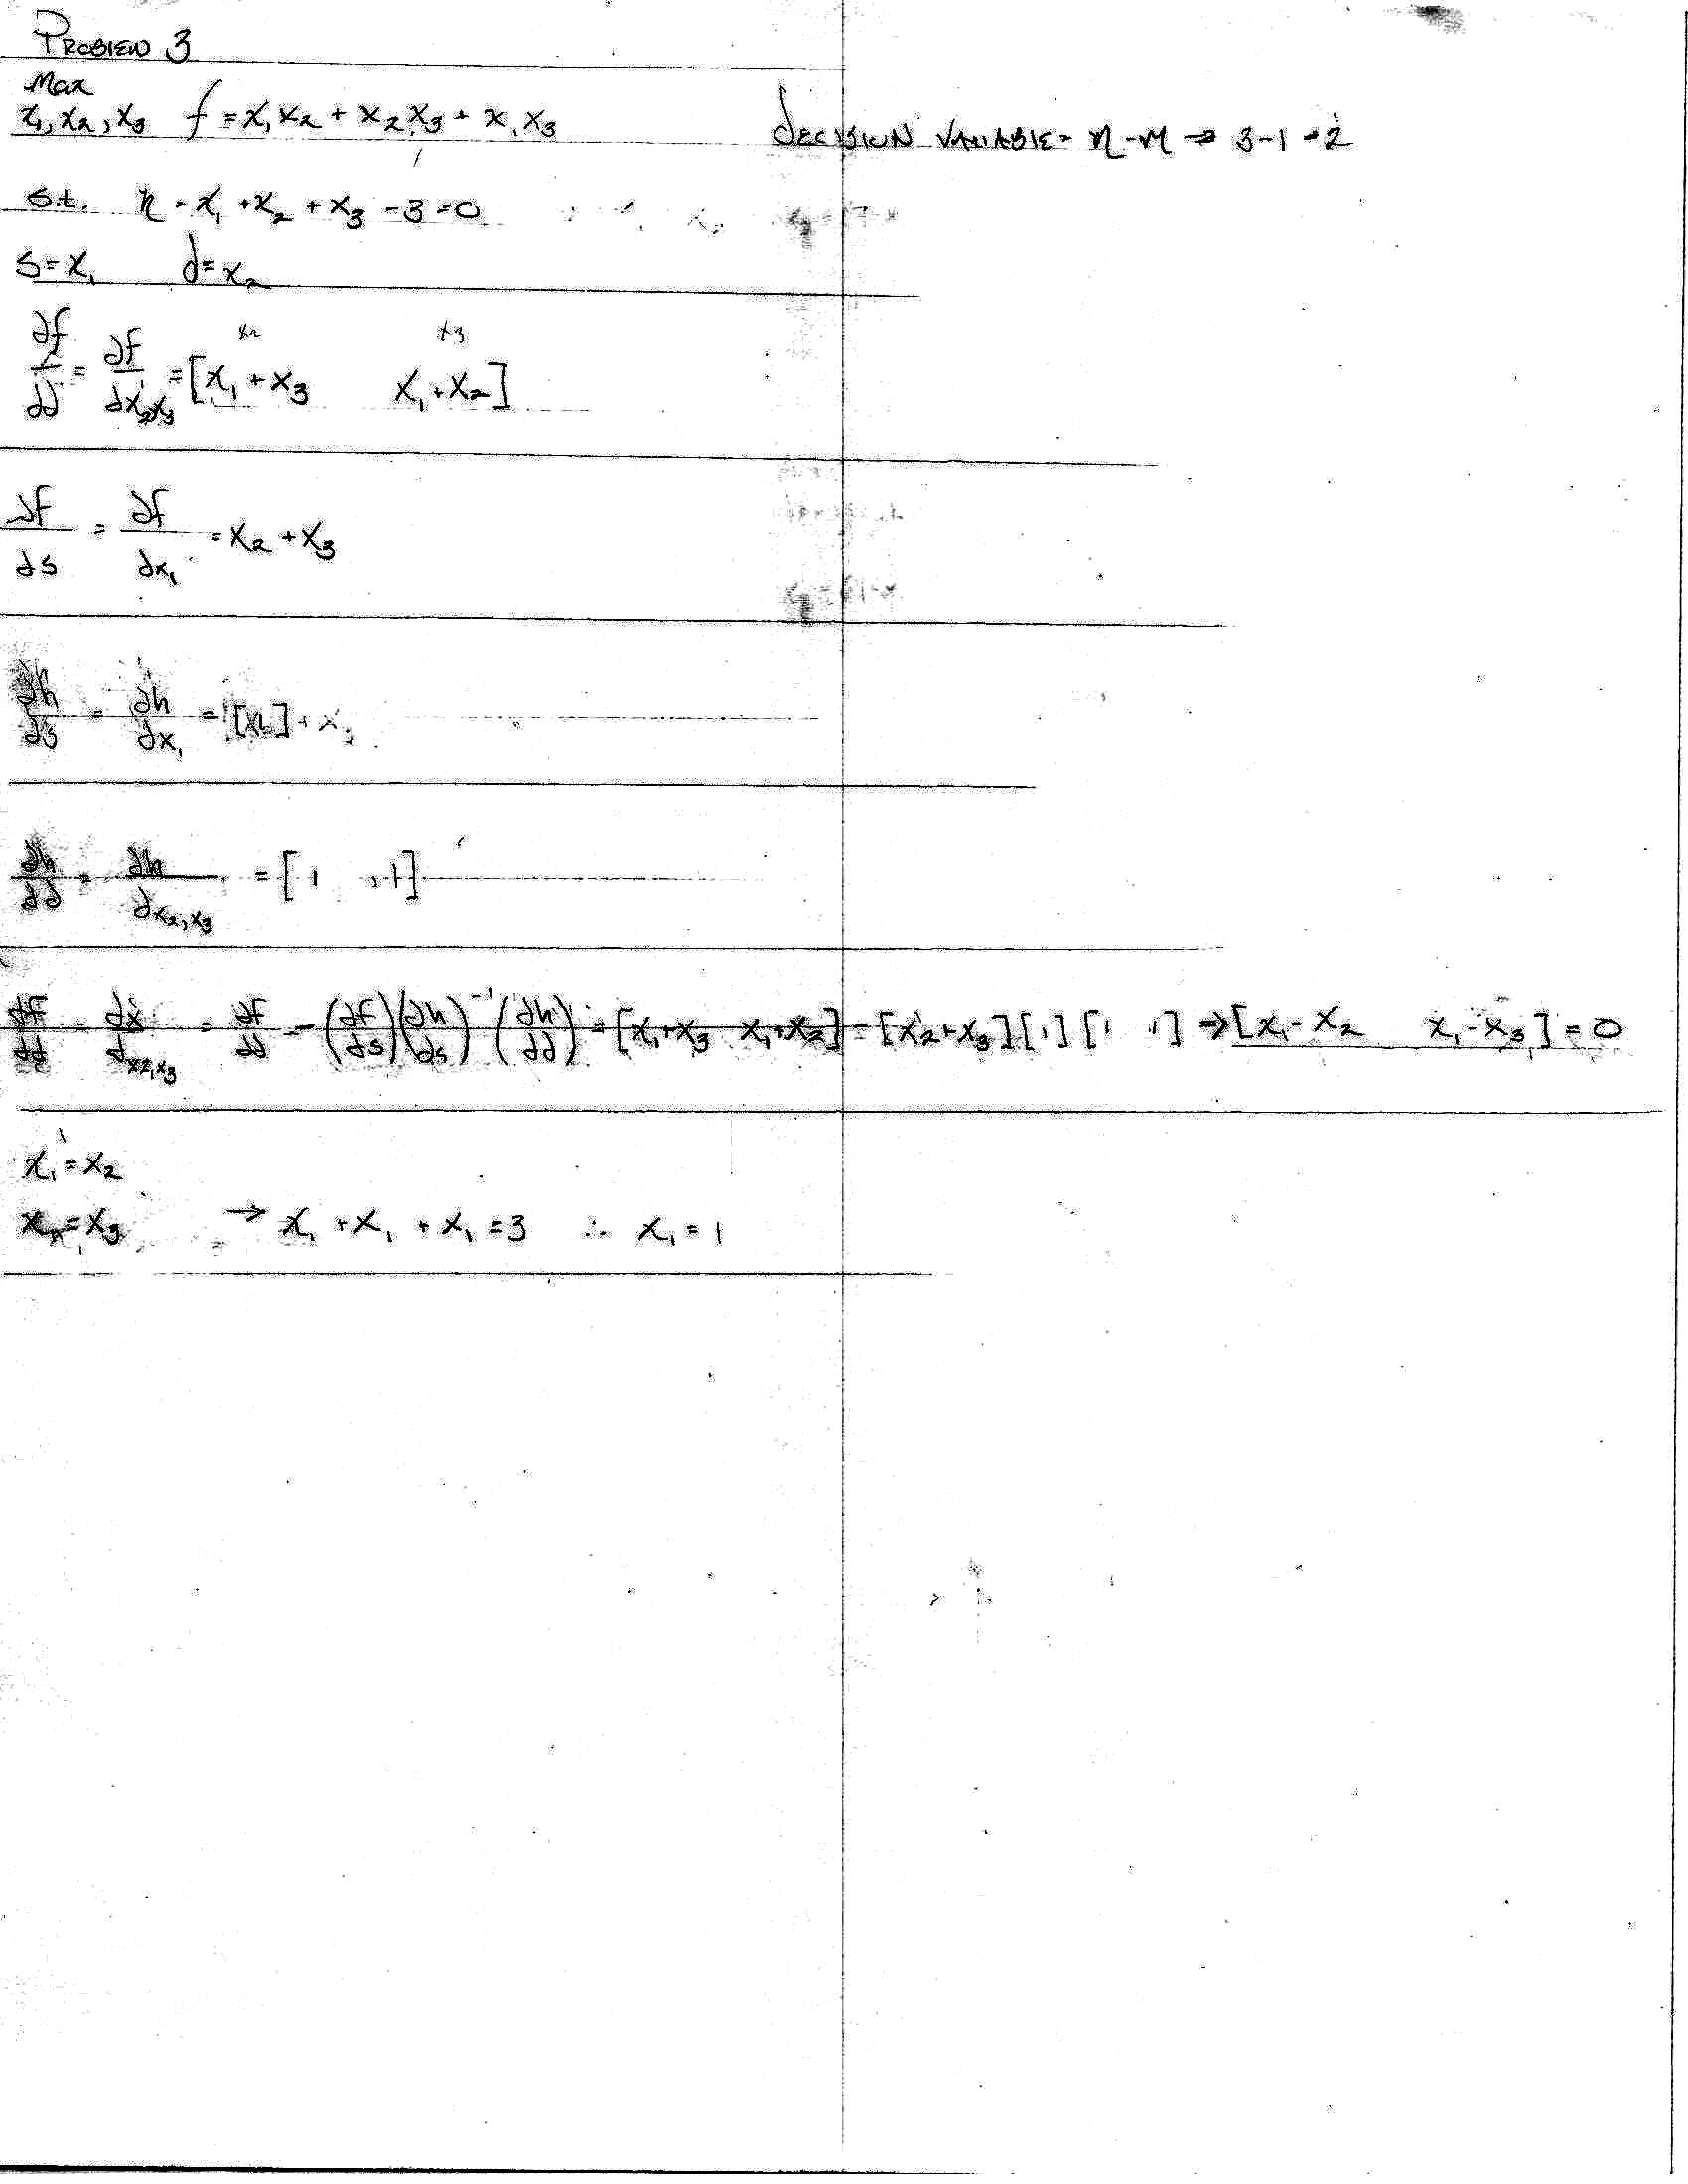 PROBLEM 3
Max
x₁, x₂, x₃ f = x₁x₂ + x₂x₃ + x₁x₃
DECISION VARIABLE = n-m ⇒ 3-1 = 2
s.t. h = x₁ + x₂ + x₃ - 3 = 0
s = x₁ d = x₂
x₂ x₃
∂f/∂d = ∂f/∂x₂x₃ = [x₁ + x₃ x₁ + x₂]
∂f/∂s = ∂f/∂x₁ = x₂ + x₃
∂h/∂s = ∂h/∂x₁ =
∂h/∂d = ∂h/∂x₂,x₃ = [1 , 1]
∂f/∂d - (∂f/∂s)(∂h/∂s)⁻¹(∂h/∂d) = [x₁+x₃ x₁+x₂] - [x₂+x₃][1][1 1] ⇒ [x₁-x₂ x₁-x₃] = 0
x₁ = x₂
= x₃ → x₁ + x₁ + x₁ = 3 ∴ x₁ = 1